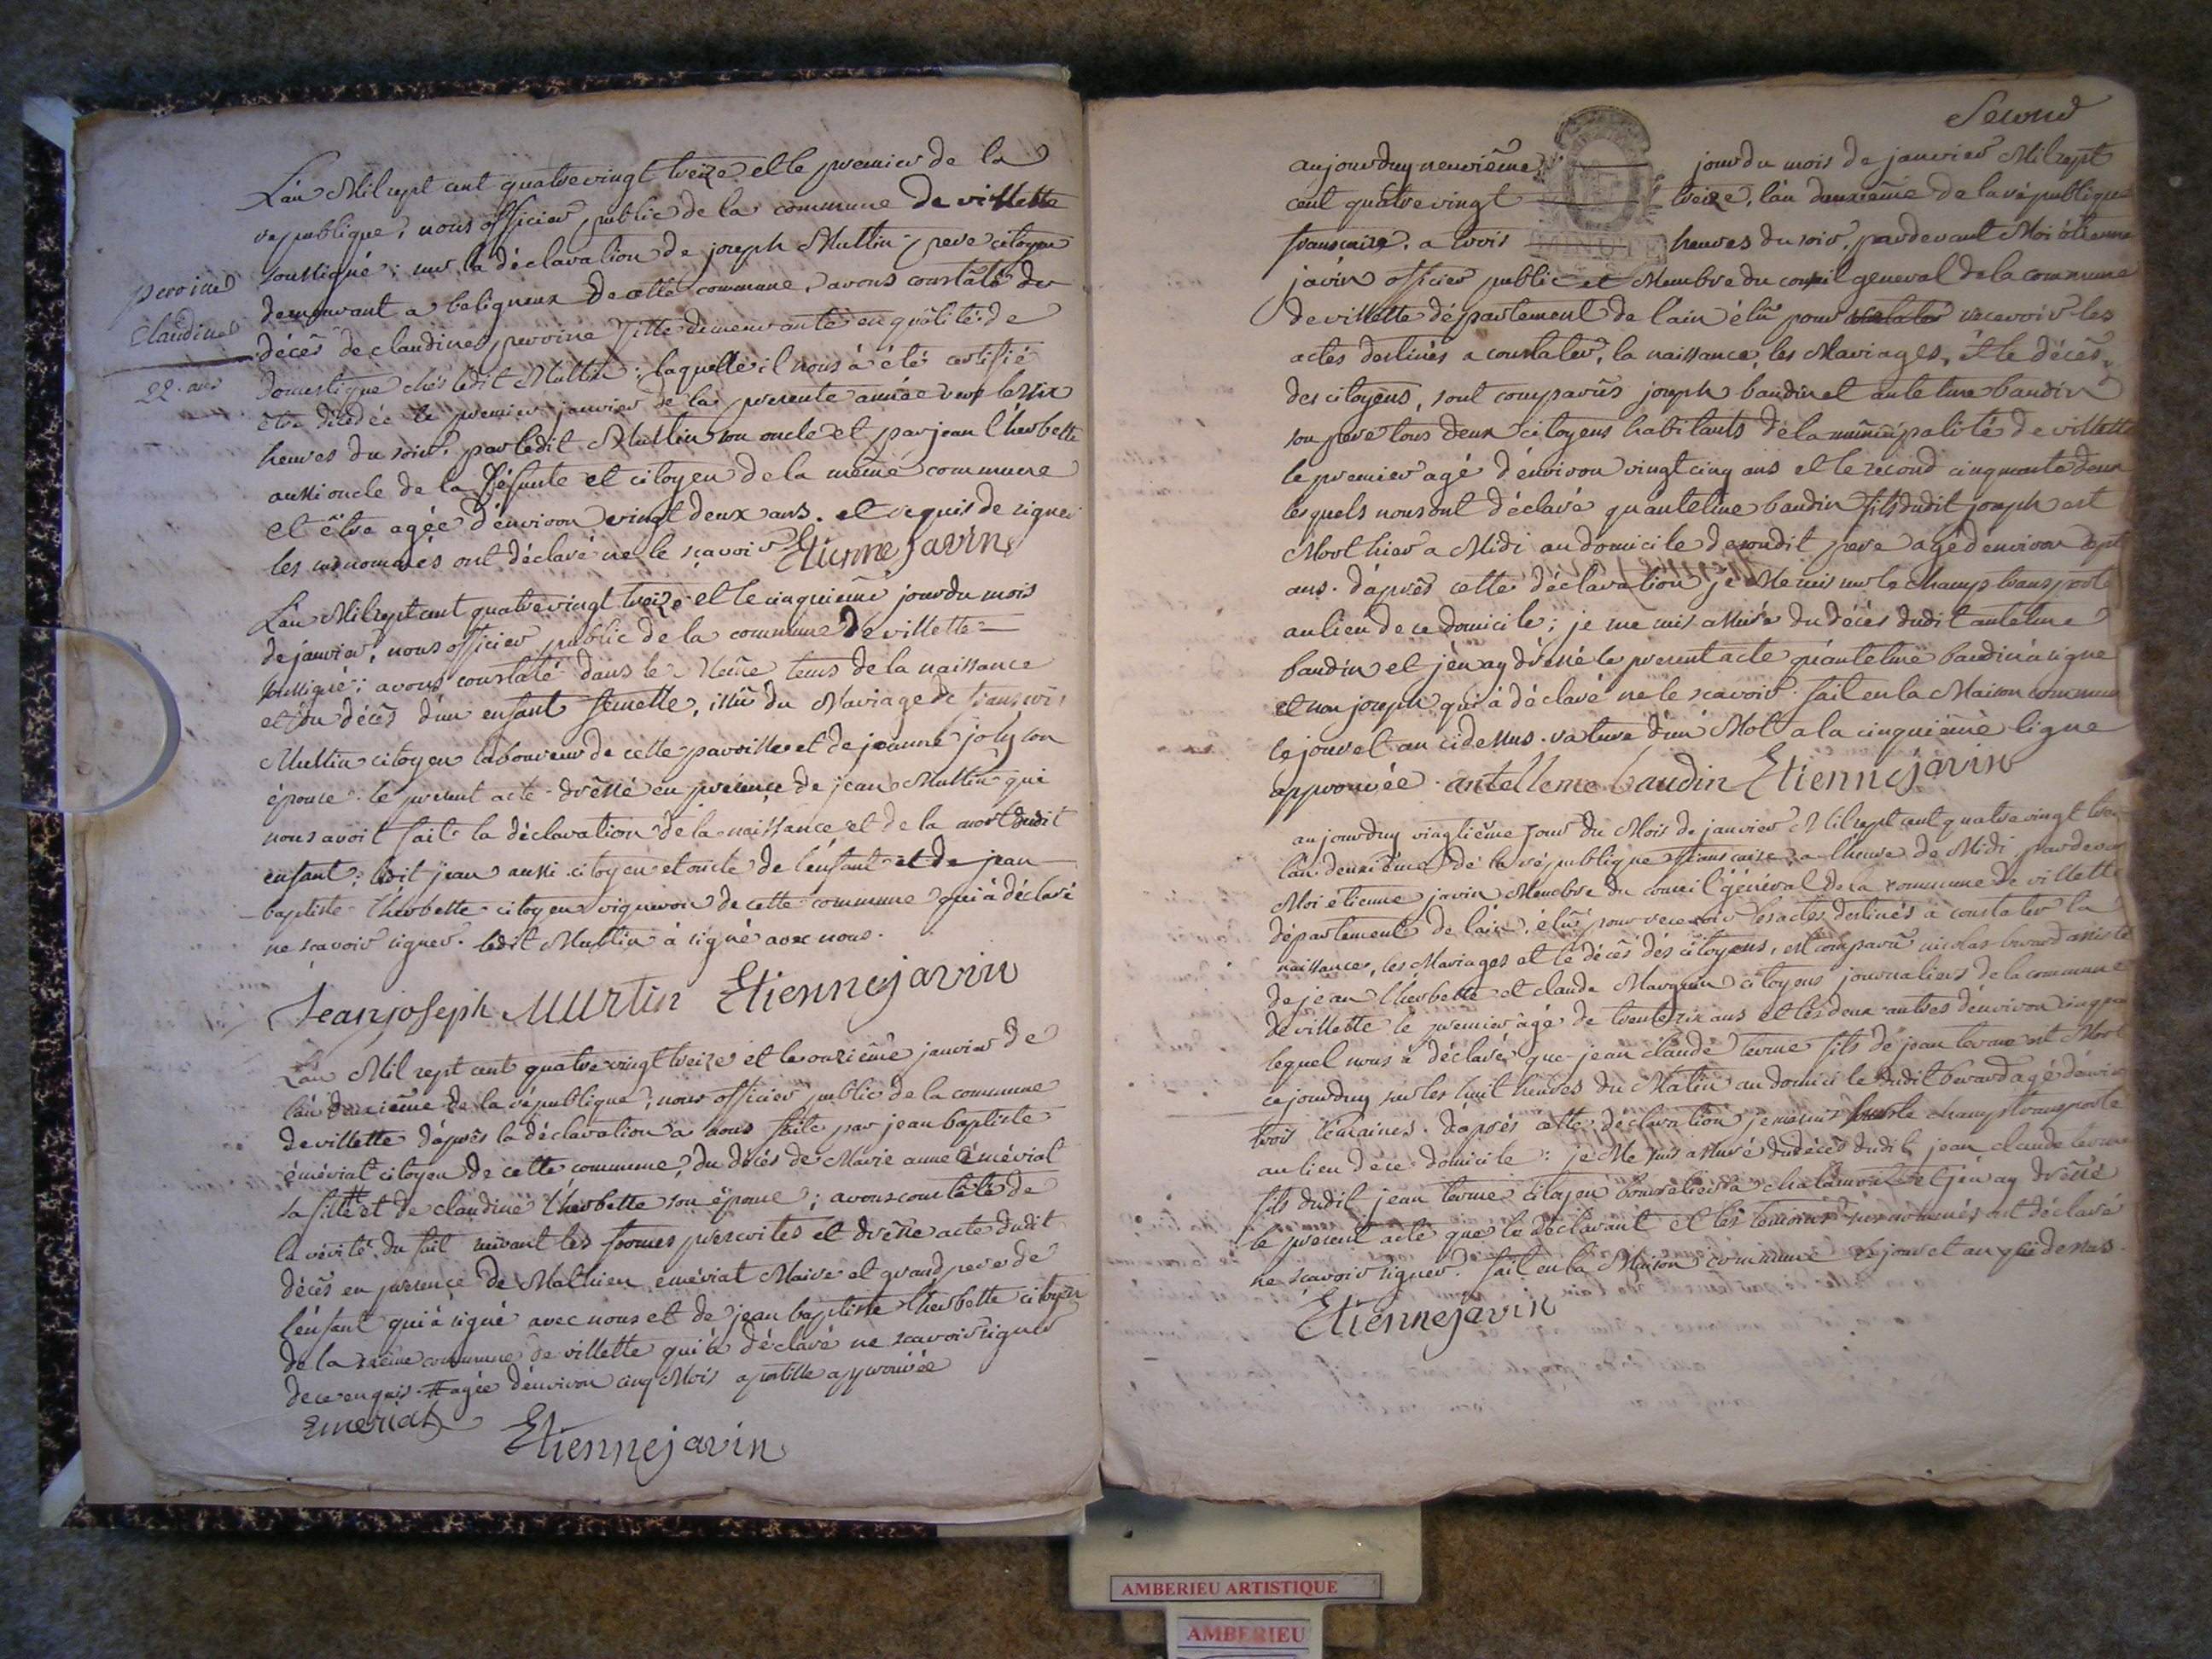 L'an Mil sept cent quatre vingt treize et le premier de la
republique, nous officier public de la commune de villette
soussigné; sur la déclaration de joseph Muttin pere citoyen
demeurant a beligneux de cette commune, avons constaté du
décès de claudine peroine fille demeurante en qualité de
domestique chés ledit Muttin; laquelle il nous à été certifié
être décedée le premier janvier de la presente année vers les six
heures du soir, par ledit Muttin son oncle et par jean l'herbette
aussi oncle de la défunte et citoyen de la même commune
et être agée d'environ vingt deux ans. et requis de signer
les susnommés ont déclaré ne le sçavoir Etienne javin
peroine
claudine
22. ans
L'an Mil sept cent quatre vingt treize et le cinquième jour du mois
de janvier, nous officier public de la commune de villette
soussigné; avons constaté dans le Même tems de la naissance
et du décès d'un enfant femelle, issu du Mariage de
Muttin citoyen laboureur de cette paroisse et de jeanne joly son
épouse. le present acte dréssé en présence de jean Muttin qui
nous avoit fait la déclaration de la naissance et de la mort dudit
enfant; ledit jean aussi citoyen et oncle de l'enfant et de jean
baptiste l'herbette citoyen vigneron de cette commune qui à déclaré
ne sçavoir signer. ledit Muttin à signé avec nous.
Jean joseph Murtin Etienne javin
L'an Mil sept cent quatre vingt treize et le onzième janvier de
l'an deuxième de la république; nous officier public de la commune
de villette d'après la déclaration a nous faite par jean baptiste
émériat citoyen de cette commune, du décès de Marie anne émériat
sa fille # et de claudine l'herbette son épouse; avons constaté de
la vérité du fait suivant les formes prescrites et dréssé acte dudit
décès en presence de Mathieu emériat Maire et grand pere de
l'enfant qui à signé avec nous et de jean baptiste l'herbette citoyen
de la même commune de villette qui à déclaré ne sçavoir signer
de ce enquis. # agée d'environ cinq Mois apostille approuvée
Emeriat
Etienne javin
Second
aujourduy neuvième jour du mois de janvier Mil sept
cent quatre vingt treize, l'an deuxième de la république
francaise, a trois heures du soir, pardevant Moi étienne
MINUTE
javin officier public et Membre du conseil general de la commune
de villette département de l'ain élû pour recevoir les
actes destinés a constater, la naissance, les Mariages, et le décès
des citoyens, sont comparûs joseph baudin et antelme baudin
son pere tous deux citoyens habitants de la municipalité de villette
le premier agé d'environ vingt cinq ans et le second cinquante deux
lesquels nous ont déclaré qu'antelme baudin fils dudit joseph est
Mort hier a Midi au domicile de sondit pere agé d'environ sept
ans. d'après cette déclaration je Me suis sur le champs transporté
au lieu de ce domicile; je me suis assuré du décès dudit antelme
baudin et j'en ay dréssé le present acte qu'antelme baudin à signé
et non joseph qui à déclaré ne le scavoir. fait en la Maison commune
le jour et an cidessus. rature d'un Mot a la cinquième ligne
approuvée. antelleme baudin Etienne javin
aujourduy vingtième jour du Mois de janvier Mil sept cent quatre vingt
l'an deuxième de la république francaise, a l'heure de Midi pardevant
Moi étienne javin Membre du conseil général de la commune de villette
département de l'ain, élû pour recevoir les actes destinés à constater la
naissance, les Mariages et le décès des citoyens, est comparû nicolas berard assisté
de jean l'herbette et claude citoyens journaliers de la commune
de villette le premier agé de trente six ans et les deux autres d'environ
lequel nous à déclaré que jean claude terme fils de jean terme est Mort
ce jourduy sur les huit heures du Matin au domicile dudit berard agé d'environ
trois sémaines. d'après cette déclaration je me suis sur le champs transporté
au lieu de ce domicile: je Me suis assuré du décès dudit jean claude terme
fils dudit jean terme citoyen bourelier a chalamont et j'en ay dréssé
le present acte que le déclarant et les temoins susnommés ont déclaré
ne sçavoir signer. fait en la Maison commune le jour et an que dessus.
Etienne javin
AMBERIEU ARTISTIQUE
AMBERIEU